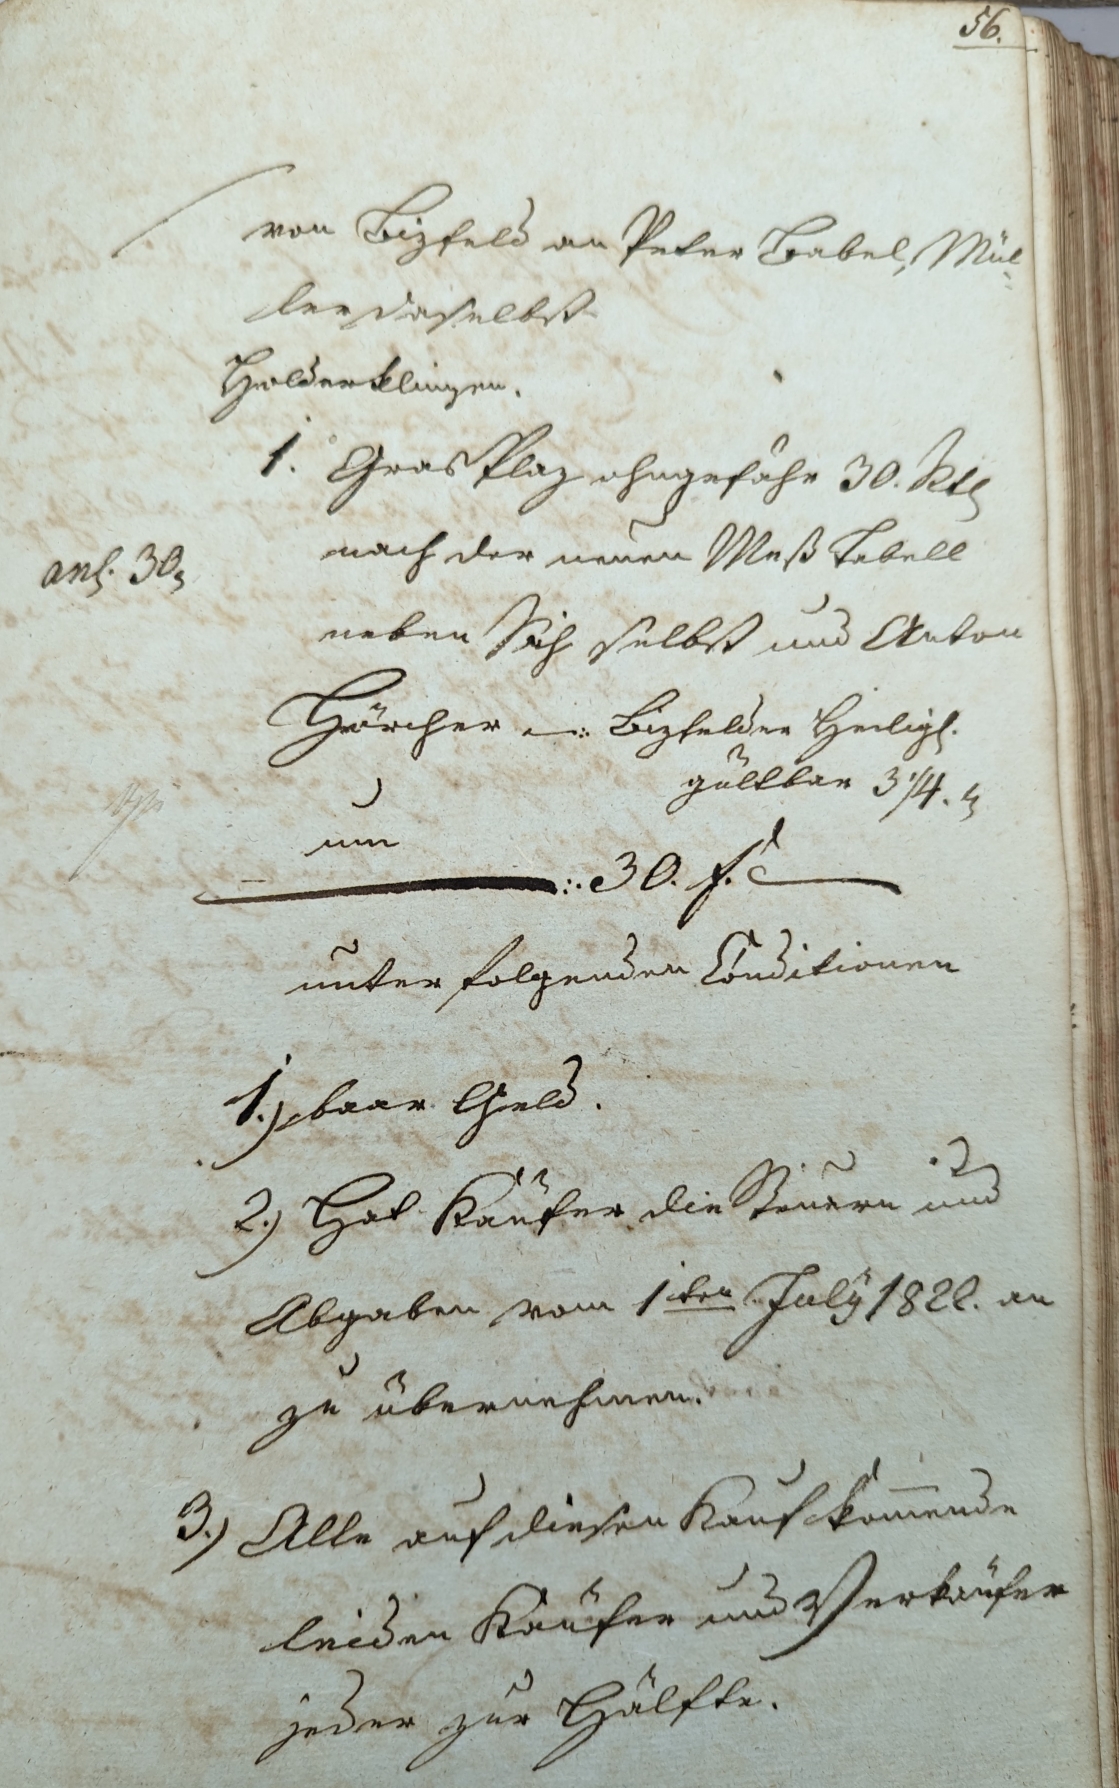 56.
von Bizfeld an Peter Babel, Mül-
ler daselbst
Holderklingen.
1. Gras Plaz ohngefähr 30. Rth
nach der neuen Meß Tabell
anh. 30
neben Sich selbst und Anton
Hörcher Bizfelder Heiligh.
gültbar 3 1/4.
um
30. f.
unter folgenden Conditionen
1.) baar Geld.
2.) Hat Käufer die Steuern und
Abgaben vom 1ten July 1822. an
zu übernehmen.
3.) Alle auf diesen Kauf kom̅ende
leiden Käufer und Verkäufer
jeder zur Hälfte.